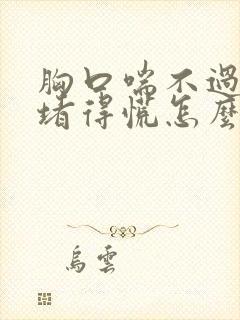 胸口喘不過
堵得慌怎麼
烏雲